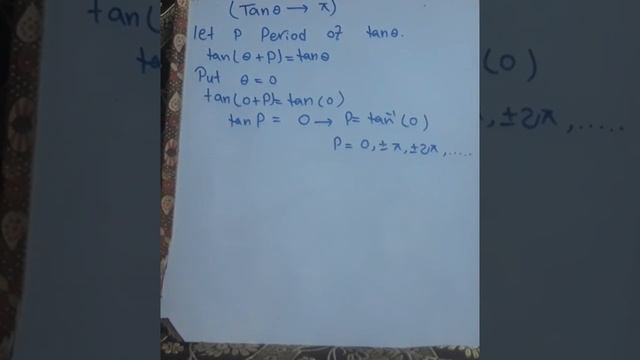 (Tanθ → π)
let P Period of tanθ.
tan(θ+P)=tanθ
Put θ = 0
tan(0+P)=tan(0)
tanP = 0 → P= tan⁻¹(0)
P= 0, ±π, ±2π, .....